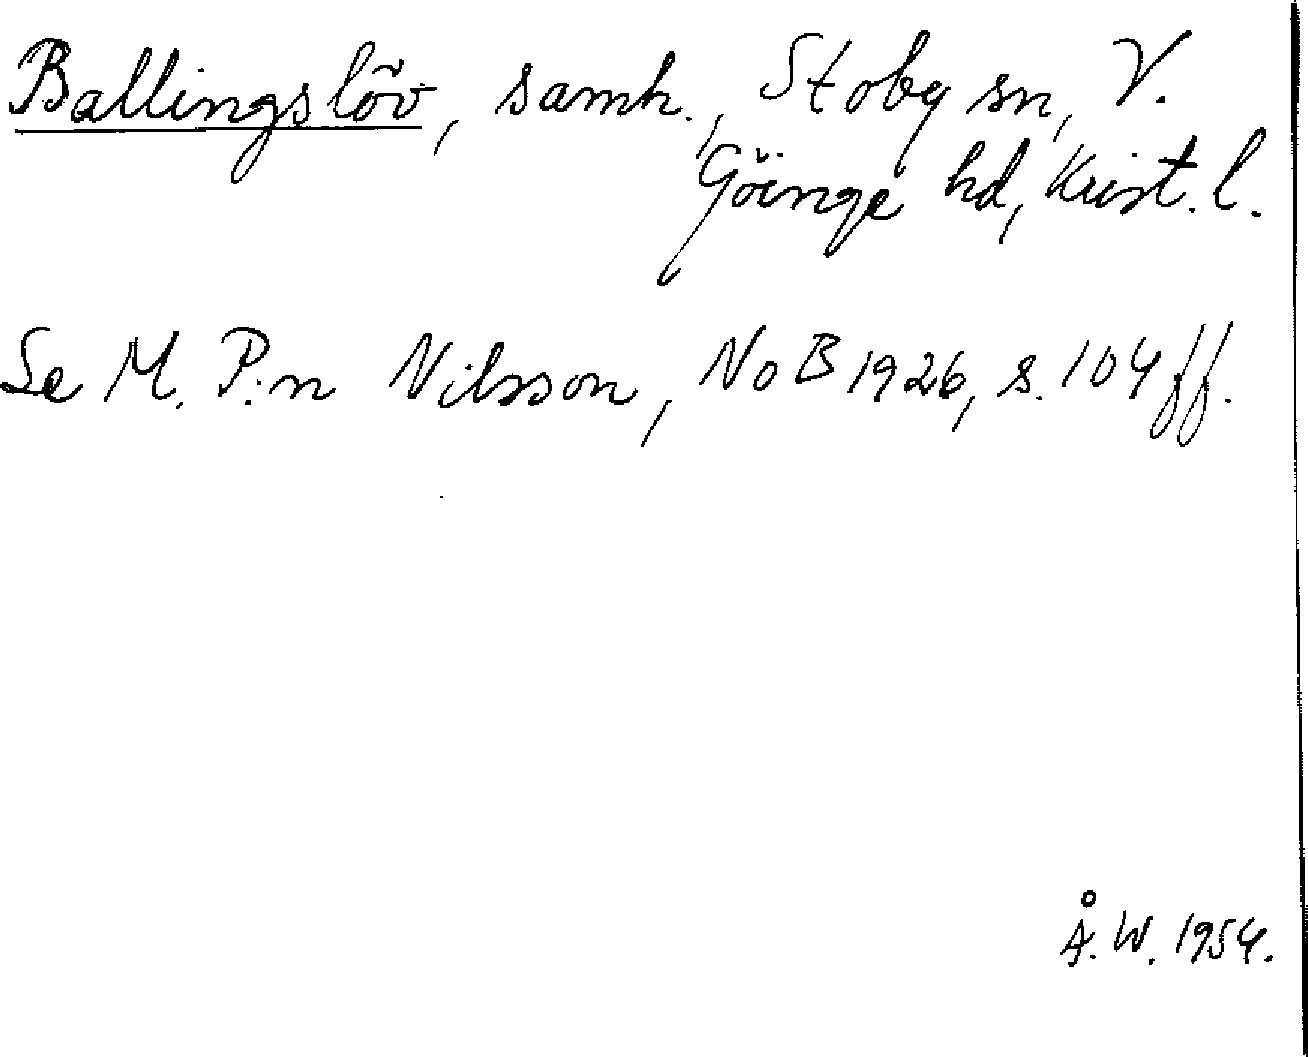 Ballingslöv, samh., Stoby sn, V.
Göinge hd, Krist. l.
Se M. P:n Nilsson, NoB 1926, s. 104 ff.
Å. W. 1954.